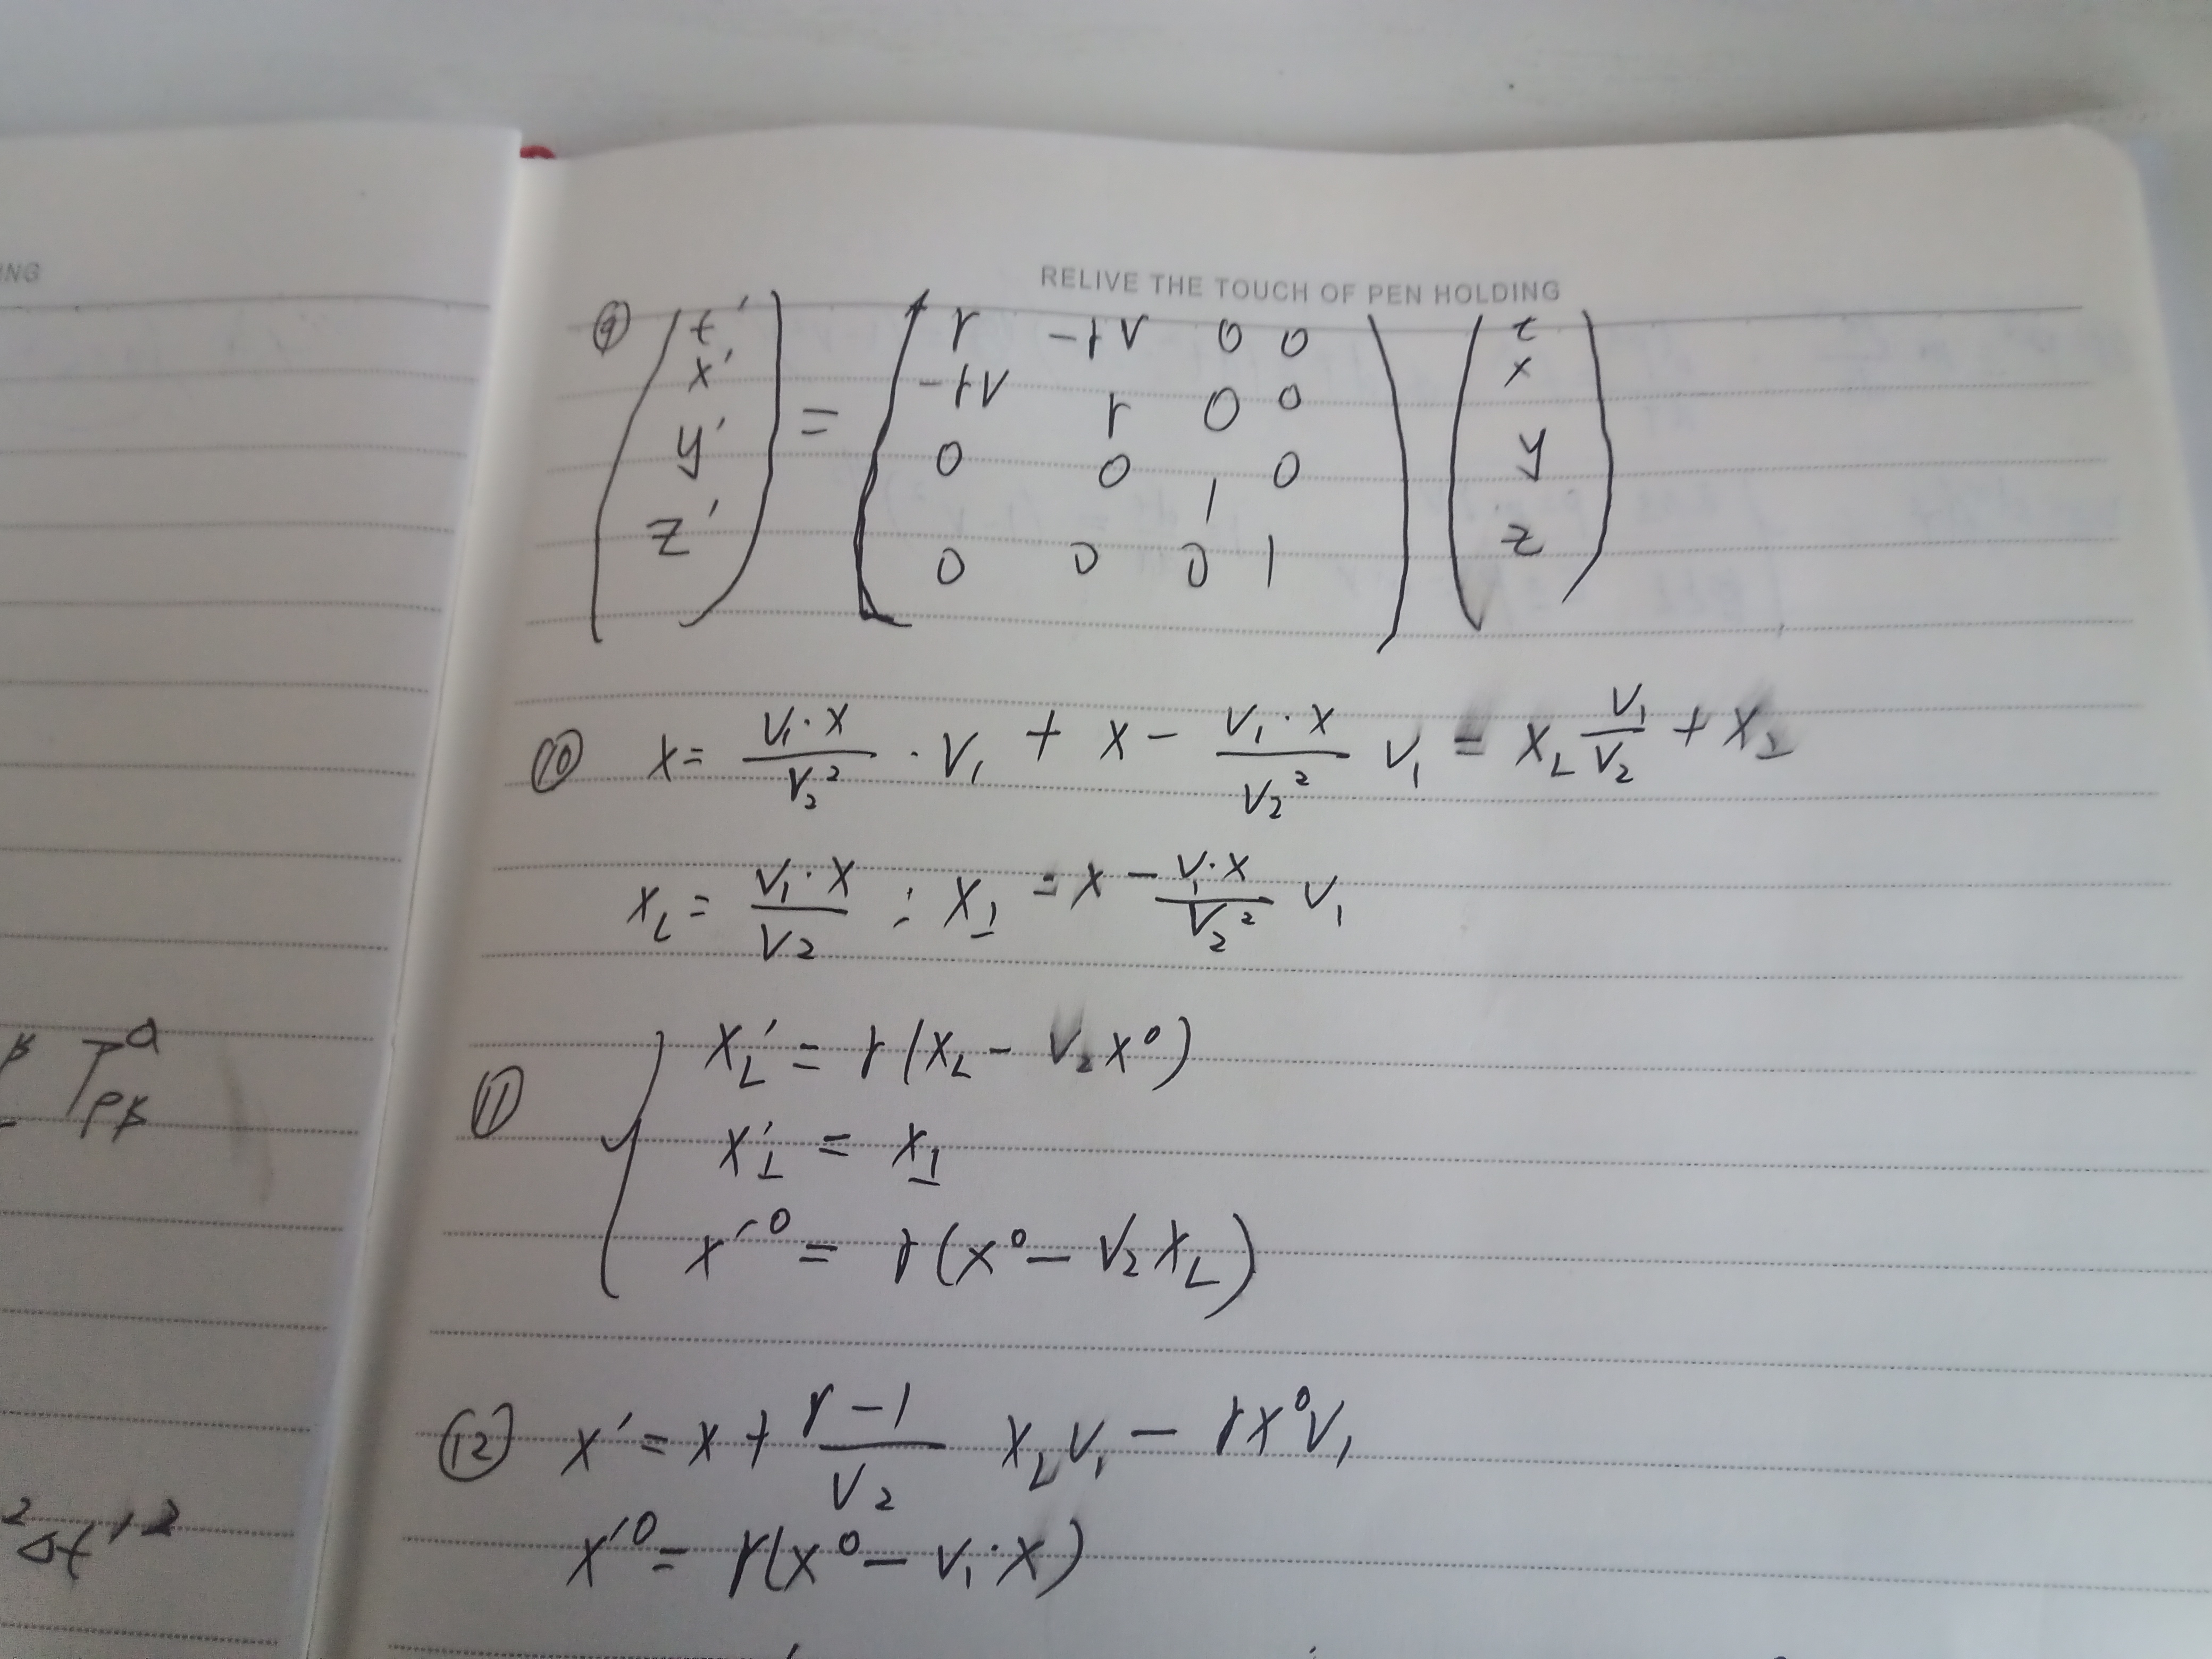 ING
RELIVE THE TOUCH OF PEN HOLDING
⑨ (t' x' y' z') = (γ -γv 0 0
-γv γ 0 0
0 0 1 0
0 0 0 1) (t x y z)
⑩ x = (v₁·x)/(v₂²) · v₁ + x - (v₁·x)/(v₂²) v₁ = x_L v₁/v₂ + x_⊥
x_L = (v₁·x)/v₂ : x_⊥ = x - (v₁·x)/(v₂²) v₁
⑪ { x'_L = γ(x_L - v₂x⁰)
x'_⊥ = x_⊥
x'⁰ = γ(x⁰ - v₂x_L)
⑫ x' = x + (γ-1)/v₂ x_L v₁ - γx⁰v₁
x'⁰ = γ(x⁰ - v₁·x)